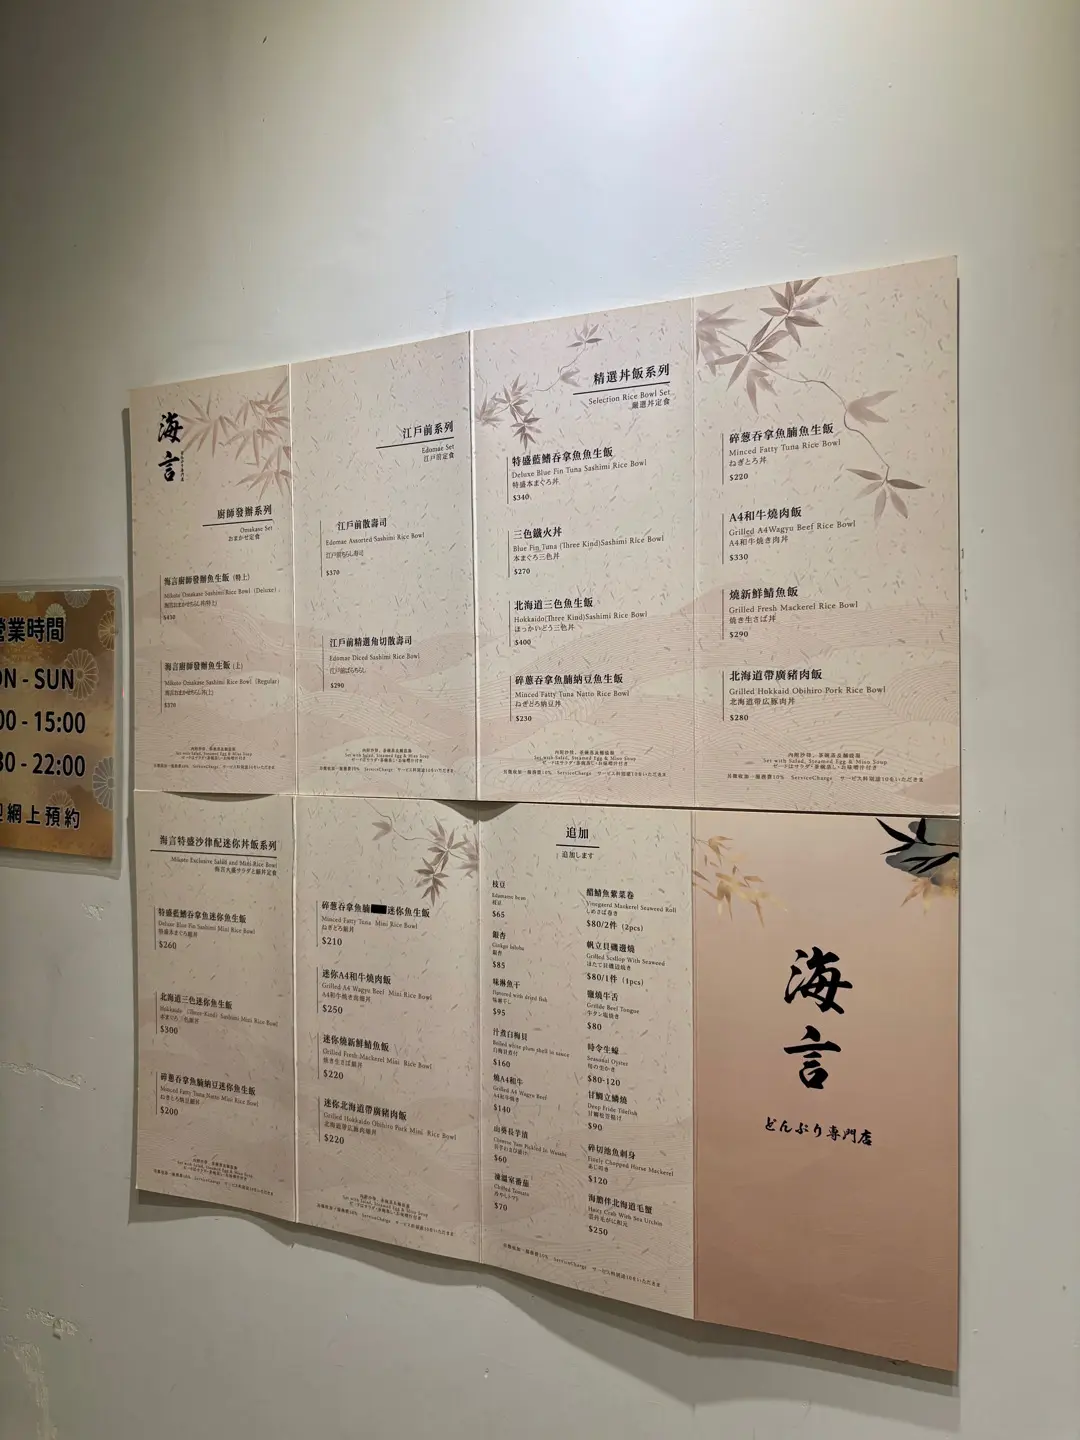 營業時間
ON - SUN
00 - 15:00
30 - 22:00
網上預約
海言
廚師發辦系列
Omakase Set
おまかせ定食
海言廚師發辦魚生飯 (特上)
Mikoto Omakase Sashimi Rice Bowl (Deluxe)
$450
海言廚師發辦魚生飯 (上)
Mikoto Omakase Sashimi Rice Bowl (Regular)
$370
Set with Salad, Steamed Egg & Miso Soup
江戶前系列
Edomae Set
江戸前定食
江戶前散壽司
Edomae Assorted Sashimi Rice Bowl
江戸前ちらし寿司
$370
江戶前精選角切散壽司
Edomae Diced Sashimi Rice Bowl
江戸前ばらちらし
$290
Set with Salad, Steamed Egg & Miso Soup
精選丼飯系列
Selection Rice Bowl Set
厳選丼定食
特盛藍鰭吞拿魚魚生飯
Deluxe Blue Fin Tuna Sashimi Rice Bowl
特盛本まぐろ丼
$340
三色鐵火丼
Blue Fin Tuna (Three Kind)Sashimi Rice Bowl
本まぐろ三色丼
$270
北海道三色魚生飯
Hokkaido(Three Kind)Sashimi Rice Bowl
ほっかいどう三色丼
$400
碎蔥吞拿魚腩納豆魚生飯
Minced Fatty Tuna Natto Rice Bowl
ねぎとろ納豆丼
$230
Set with Salad, Steamed Egg & Miso Soup
碎蔥吞拿魚腩魚生飯
Minced Fatty Tuna Rice Bowl
ねぎとろ丼
$220
A4和牛燒肉飯
Grilled A4Wagyu Beef Rice Bowl
A4和牛焼き肉丼
$330
燒新鮮鯖魚飯
Grilled Fresh Mackerel Rice Bowl
焼き生さば丼
$290
北海道帶廣豬肉飯
Grilled Hokkaid Obihiro Pork Rice Bowl
北海道帯広豚肉丼
$280
Set with Salad, Steamed Egg & Miso Soup
海言特盛沙律配迷你丼飯系列
Mikoto Exclusive Salad and Mini Rice Bowl
特盛藍鰭吞拿魚迷你魚生飯
Deluxe Blue Fin Tuna Sashimi Mini Rice Bowl
$260
北海道三色迷你魚生飯
Hokkaido (Three Kind) Sashimi Mini Rice Bowl
$300
碎蔥吞拿魚腩納豆迷你魚生飯
Minced Fatty Tuna Natto Mini Rice Bowl
$200
Set with Salad, Steamed Egg & Miso Soup
碎蔥吞拿魚腩 迷你魚生飯
Minced Fatty Tuna Mini Rice Bowl
$210
迷你A4和牛燒肉飯
Grilled A4 Wagyu Beef Mini Rice Bowl
$250
迷你燒新鮮鯖魚飯
Grilled Fresh Mackerel Mini Rice Bowl
$220
迷你北海道帶廣豬肉飯
Grilled Hokkaido Obihiro Pork Mini Rice Bowl
$220
Set with Salad, Steamed Egg & Miso Soup
追加
追加します
枝豆
Edamame bean
枝豆
$65
銀杏
Ginkgo biloba
銀杏
$85
味淋魚干
Flavored with dried fish
$95
汁煮白梅貝
Boiled white plum shell in sauce
$160
燒A4和牛
Grilled A4 Wagyu Beef
$140
山葵長芋漬
Chinese Yam Pickled In Wasabi
$60
凍溫室番茄
Chilled Tomato
冷やしトマト
$70
醋鯖魚紫菜卷
Vinegared Mackerel Seaweed Roll
しめさば巻き
$80/2件 (2pcs)
帆立貝磯邊燒
Grilled Scallop With Seaweed
ほたて貝磯辺焼き
$80/1件 (1pcs)
鹽燒牛舌
Grilled Beef Tongue
牛タン塩焼き
$80
時令生蠔
Seasonal Oyster
旬の生かき
$80-120
甘鯛立鱗燒
Deep Fride Tilefish
$90
碎切池魚刺身
Finely Chopped Horse Mackerel
$120
海膽伴北海道毛蟹
Hairy Crab With Sea Urchin
$250
海言
どんぶり専門店